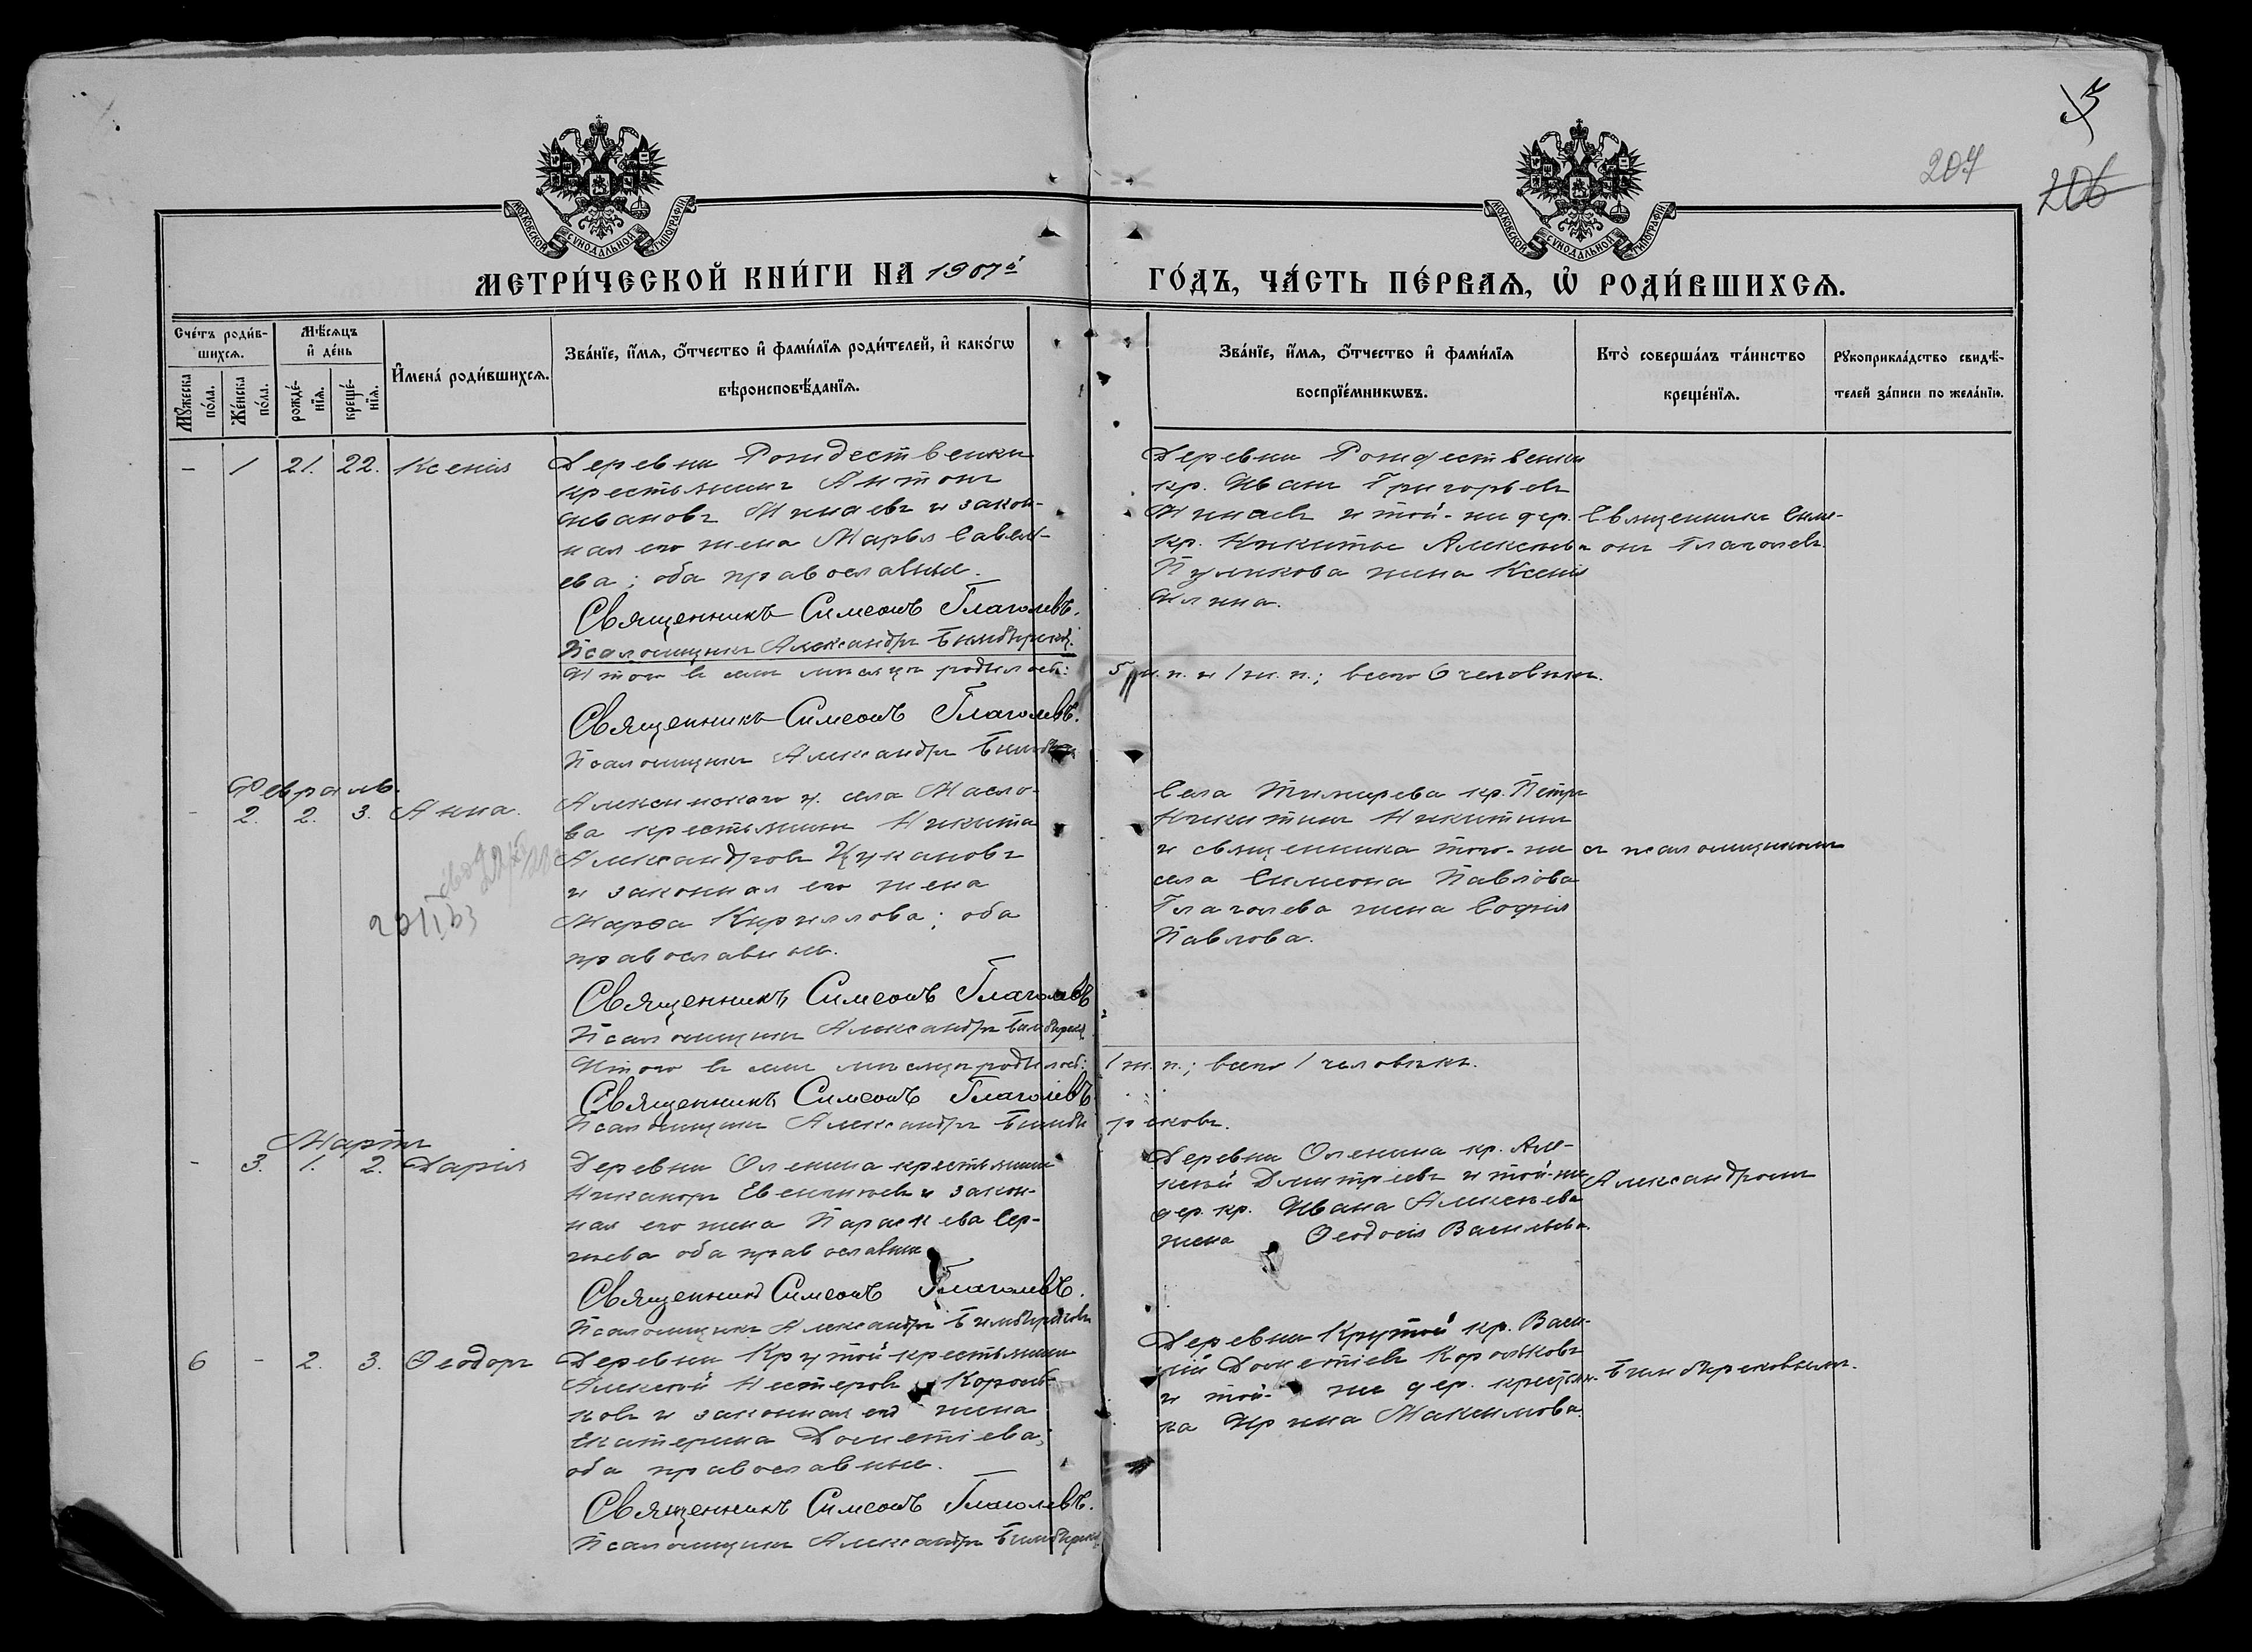 5
207
206
МОСКОВСКОЙ СУНОДАЛЬНОЙ ТИПОГРАФІИ
МОСКОВСКОЙ СУНОДАЛЬНОЙ ТИПОГРАФІИ
МЕТРИ́ЧЕСКОЙ КНИ́ГИ НА 1907й
ГО́ДЪ, ЧА́СТЬ ПЕ́РВАѦ, Ѡ҆ РОДИ́ВШИХСѦ.
Сче́тъ роди́в-
шихсѧ.
Мꙋ́жеска по́ла.
Же́нска по́ла.
Мѣ́сѧцъ
и҆ де́нь
рожде́-
нїѧ.
креще́-
нїѧ.
И҆мена̀ роди́вшихсѧ.
Зва́нїе, и҆́мѧ, ѻ҆́тчество и҆ фами́лїѧ роди́телей, и҆ како́гѡ
вѣроисповѣ́данїѧ.
Зва́нїе, и҆́мѧ, ѻ҆́тчество и҆ фами́лїѧ
воспрїе́мникѡвъ.
Кто̀ соверша́лъ та́инство
креще́нїѧ.
Рꙋкоприкла́дство свидѣ́-
телей за́писи по жела́нїю.
- 1 21. 22. Ксенія
Деревни Рождественки
крестьянинъ Антонъ
Ивановъ Минаевъ и закон-
ная его жена Марья Савель-
ева; оба православные.
Священникъ Симеонъ Глаголевъ.
Псаломщикъ Александръ
Деревни Рождественки
кр. Иванъ Григорьевъ
Минаевъ и той-же дер.
кр. Никиты Алексѣева
Пуликова жена Ксенія
Ильина.
Священникъ Симе-
онъ Глаголевъ
Итого въ семъ мѣсяцѣ родилось: 5 м.п. и 1 ж.п.; всего 6 человѣкъ.
Священникъ Симеонъ Глаголевъ.
Псаломщикъ Александръ
Февраль.
- 2. 2. 3. Анна.
Алексинскаго у. села Масло-
ва крестьянинъ Никита
Александровъ Цукановъ
и законная его жена
Марѳа Кириллова; оба
православные.
Священникъ Симеонъ Глаголевъ
Псаломщикъ Александръ
Села Тимирева кр. Петръ
Никитинъ Никитинъ
и священника того-же
села Симеона Павлова
Глаголева жена Софія
Павлова.
съ псаломщикомъ
Итого въ семъ мѣсяцѣ родилось: 1 ж.п.; всего 1 человѣкъ.
Священникъ Симеонъ Глаголевъ
Псаломщикъ Александръ Бимбирековъ.
Мартъ
- 3. 1. 2. Дарія
Деревни Оленина крестьянинъ
Никаноръ Евсигніевъ и закон-
ная его жена Параскева Сер-
гѣева оба православные
Священникъ Симеонъ Глаголевъ.
Псаломщикъ Александръ Бимбирековъ
Деревни Оленина кр. Але-
ксѣй Димитріевъ и той-же
дер. кр. Ивана Алексѣева
жена Ѳеодосія Васильева.
Александромъ
6 - 2. 3. Ѳеодоръ
Деревни Крутой крестьянинъ
Алексѣй Нестеровъ Король-
ковъ и законная его жена
Екатерина Дометіева;
оба православные.
Священникъ Симеонъ Глаголевъ.
Псаломщикъ Александръ
Деревни Крутой кр. Васи-
лій Дометіевъ Корольковъ
и той-же дер. крестьян-
ка Ирина Максимова.
Бимбирековымъ.